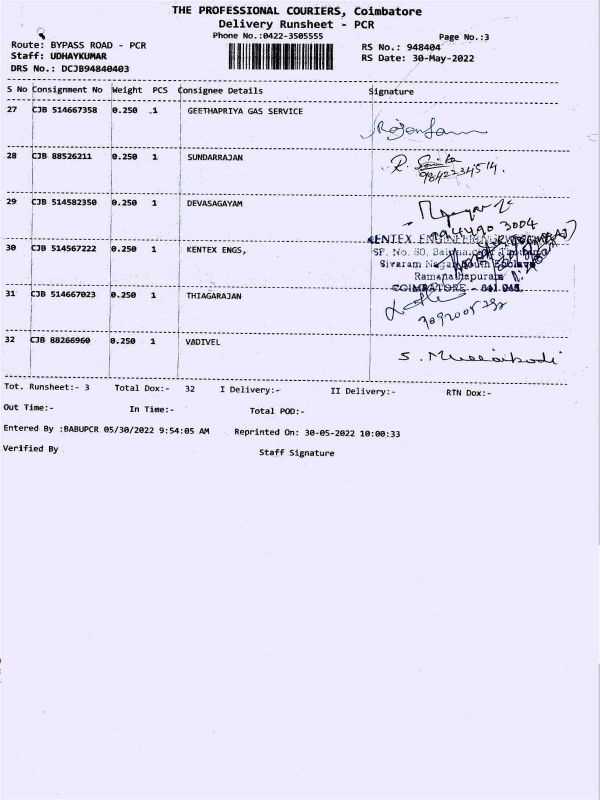 THE PROFESSIONAL COURIERS, Coimbatore
Delivery Runsheet - PCR
Phone No.:0422-3505555
Page No.:3
Route: BYPASS ROAD - PCR
RS No.: 948404
Staff: UDHAYKUMAR
RS Date: 30-May-2022
DRS No.: DCJB94840403
S No Consignment No Weight PCS Consignee Details Signature
27 CJB 514667358 0.250 1 GEETHAPRIYA GAS SERVICE
28 CJB 88526211 0.250 1 SUNDARRAJAN R.
9842234514.
29 CJB 514582350 0.250 1 DEVASAGAYAM
30 CJB 514567222 0.250 1 KENTEX ENGS,
KENTEX
SF. No. 50,
Sivaram Nagar, South
Ramanathapuram
COIMBATORE - 641 045.
31 CJB 514667023 0.250 1 THIAGARAJAN
32 CJB 88266960 0.250 1 VADIVEL S.
Tot. Runsheet:- 3 Total Dox:- 32 I Delivery:- II Delivery:- RTN Dox:-
Out Time:- In Time:- Total POD:-
Entered By :BABUPCR 05/30/2022 9:54:05 AM Reprinted On: 30-05-2022 10:00:33
Verified By Staff Signature